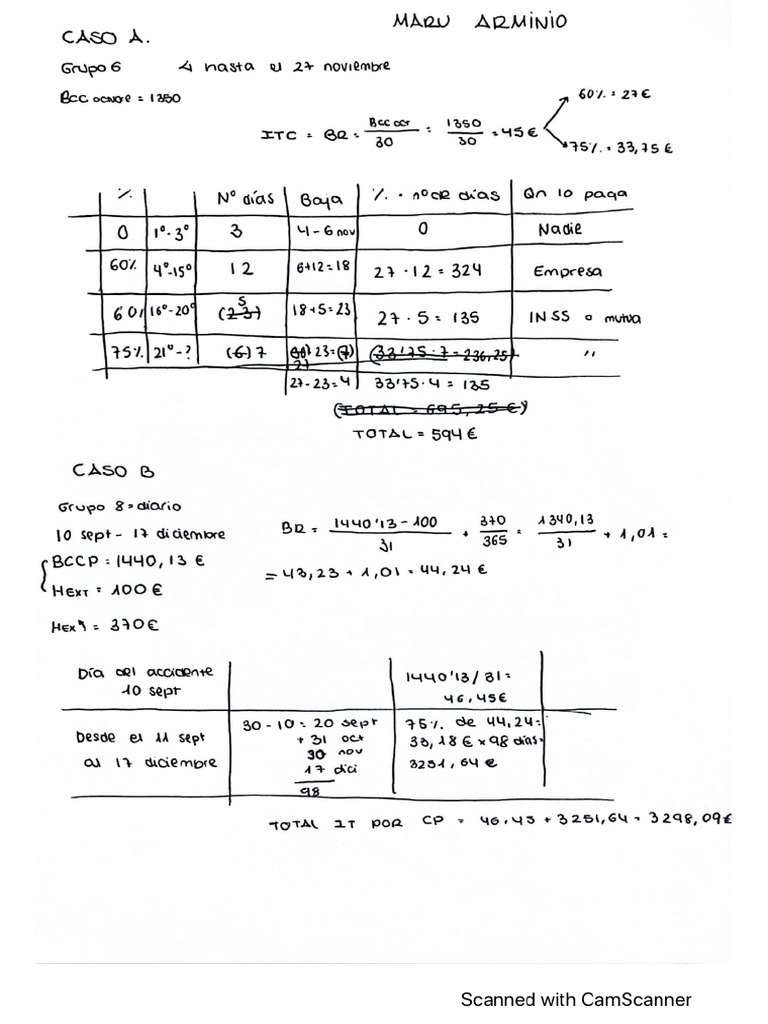 MARU ARMINIO
CASO A.
Grupo 6 4 hasta el 27 noviembre
BCC ocnore = 1350
ITC = BR = Bcc ocr / 30 = 1350 / 30 = 45€
60% = 27€
75% = 33,75€
% Nº días Baja % · nº de días Qn lo paga
0 1º-3º 3 4-6 nov 0 Nadie
60% 4º-15º 12 6+12=18 27 · 12 = 324 Empresa
60% 16º-20º (23) 5 18+5=23 27 · 5 = 135 INSS o mutua
75% 21º-? (6) 7 (30) 23=(7) (33'75 · 7 = 236,25) "
27
27-23=4 33'75 · 4 = 135
(TOTAL = 695,25€)
TOTAL = 594€
CASO B
Grupo 8 = diario
10 sept - 17 diciembre
BCCP = 1440,13€
HEXT = 100€
HEXᵃ = 370€
BR = 1440'13 - 100 / 31 + 370 / 365 = 1340,13 / 31 + 1,01 =
= 43,23 + 1,01 = 44,24€
Día del accidente
10 sept
1440'13/31 =
46,45€
Desde el 11 sept
al 17 diciembre
30-10 = 20 sept
+ 31 oct
30 nov
17 dici
98
75% de 44,24 =
33,18€ x 98 días =
3251,64€
TOTAL IT POR CP = 46,45 + 3251,64 = 3298,09€
Scanned with CamScanner